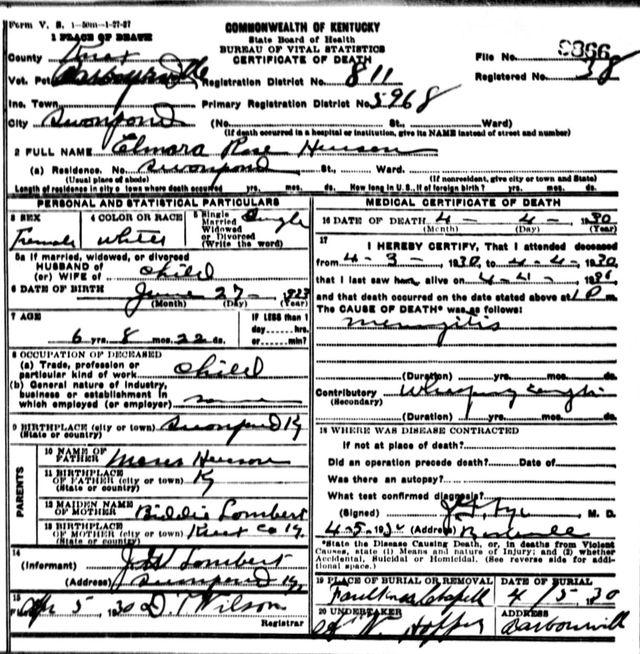 Form V. S. 1-50m-1-27-27
COMMONWEALTH OF KENTUCKY
State Board of Health
BUREAU OF VITAL STATISTICS
CERTIFICATE OF DEATH
1 PLACE OF DEATH
County Knox
File No. 9866
Vot. Pct Barbourville Registration District No. 811
Registered No. 38
Inc. Town Primary Registration District No. 5968
City Swanpond (No. St. Ward)
(If death occurred in a hospital or institution, give its NAME instead of street and number)
2 FULL NAME Elmora Rose Henson
(a) Residence. No. Swanpond St., Ward.
(Usual place of abode) (If nonresident, give city or town and State)
Length of residence in city or town where death occurred yrs. mos. ds. How long in U. S., if of foreign birth? yrs. mos. ds.
PERSONAL AND STATISTICAL PARTICULARS
3 SEX Female
4 COLOR OR RACE White
5 Single Married Widowed or Divorced (Write the word) Single
5a If married, widowed, or divorced
HUSBAND of
(or) WIFE of child
6 DATE OF BIRTH June 27 - 1923
(Month) (Day) (Year)
7 AGE
IF LESS than 1
day hrs.
or min?
6 yrs. 8 mos. 22 ds.
8 OCCUPATION OF DECEASED
(a) Trade, profession or
particular kind of work child
(b) General nature of industry,
business or establishment in
which employed (or employer)
9 BIRTHPLACE (city or town) Swanpond Ky
(State or country)
PARENTS
10 NAME OF
FATHER Moses Henson
11 BIRTHPLACE
OF FATHER (city or town) Ky
(State or country)
12 MAIDEN NAME
OF MOTHER Biddie Lombert
13 BIRTHPLACE
OF MOTHER (city or town) Knox Co Ky.
(State or country)
14
(Informant) Lombert
(Address) Swanpond Ky.
15
Filed Apr 5, 1930 D. T. Wilson
Registrar
MEDICAL CERTIFICATE OF DEATH
16 DATE OF DEATH 4 - 4 - 1930
(Month) (Day) (Year)
17
I HEREBY CERTIFY, That I attended deceased
from 4-3-, 1930, to 4-4-, 1930,
that I last saw her alive on 4-4-, 1930,
and that death occurred on the date stated above at 10 m.
The CAUSE OF DEATH* was as follows:
Mengitis
(Duration) yrs. mos. ds.
Contributory Whooping cough
(Secondary)
(Duration) yrs. mos. ds.
18 WHERE WAS DISEASE CONTRACTED
If not at place of death?
Did an operation precede death? Date of
Was there an autopsy?
What test confirmed diagnosis?
(Signed) M. D.
4-5-1930 (Address)
*State the Disease Causing Death, or, in deaths from Violent
Causes, state (1) Means and nature of Injury; and (2) whether
Accidental, Suicidal or Homicidal. (See reverse side for addi-
tional space.)
19 PLACE OF BURIAL OR REMOVAL Faulkner Chapell
DATE OF BURIAL 4/5/30
20 UNDERTAKER W. Hopper
ADDRESS Barbourville